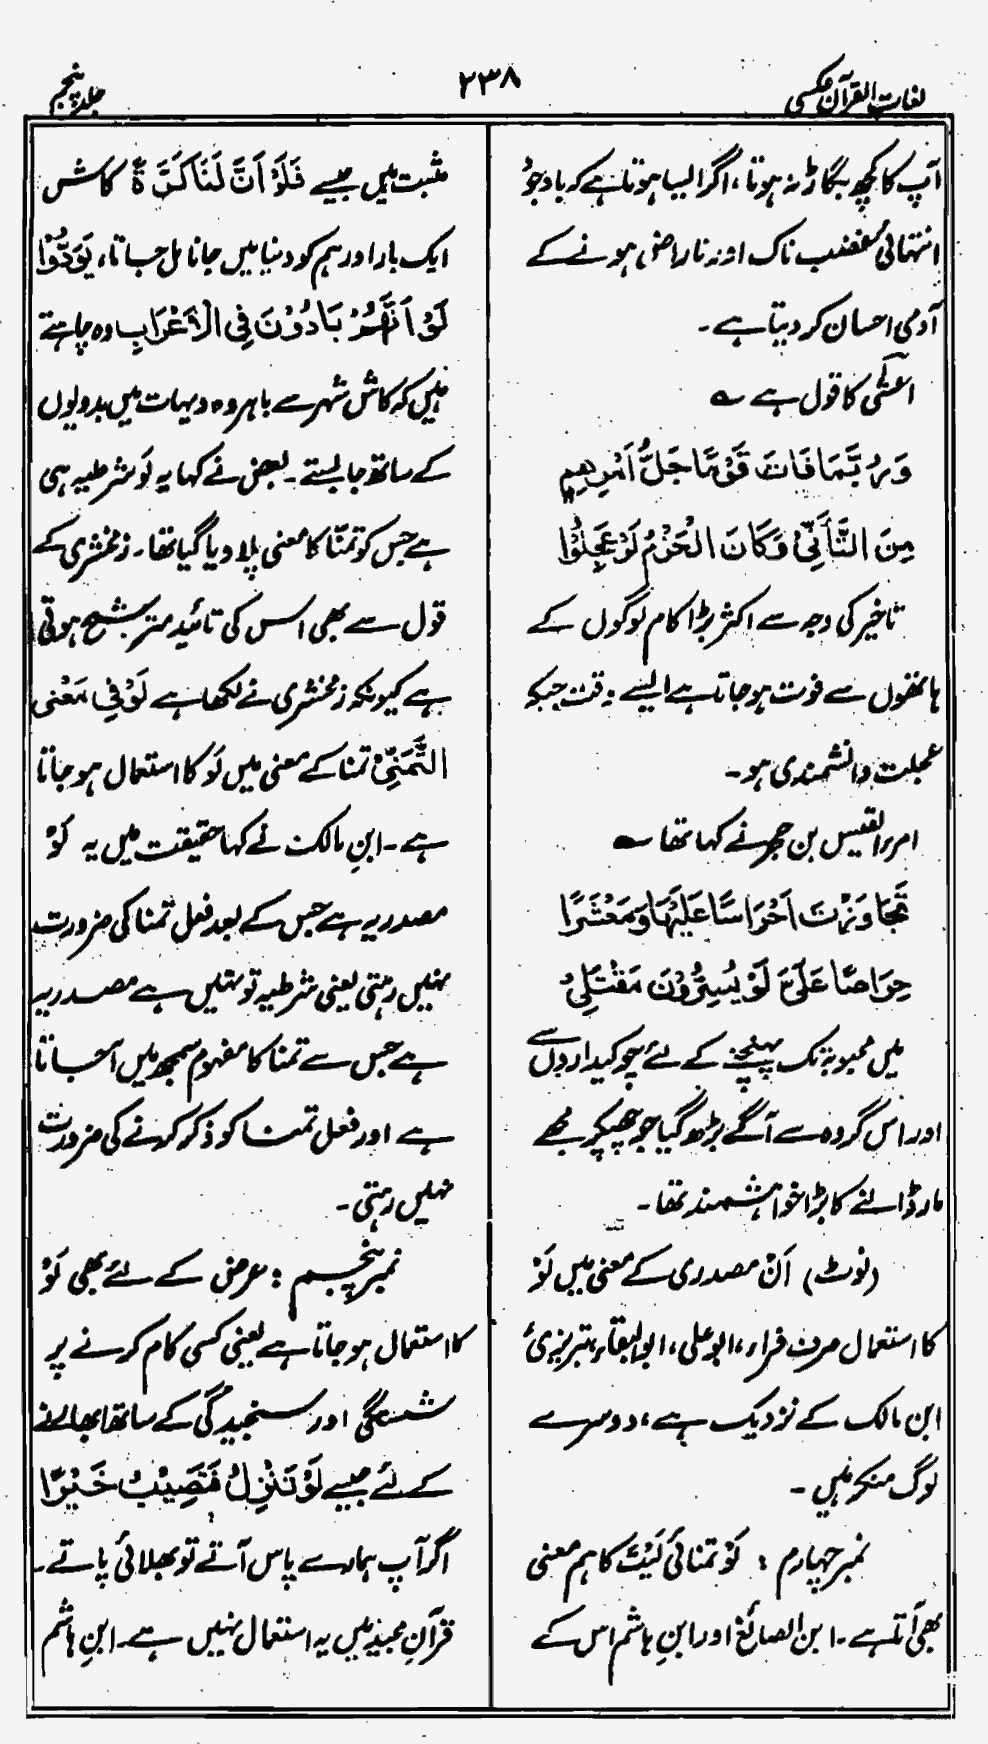 لغات القرآن عکسی
۲۳۸
جلد پنجم
آپ کا کچھ بگاڑ نہ ہوتا، اگر ایسا ہوتا ہے کہ باوجود
انتہائی غضب ناک اور ناراض ہونے کے
آدمی احسان کر دیتا ہے۔
اعشٰی کا قول ہے ؎
وَرُبَّمَا فَاتَ قَوْمًا جَلُّ اَمْرِهِمِ
مِنَ التَّأَنِّيْ وَكَانَ الْحَزْمُ لَوْ عَجِلُوْا
تاخیر کی وجہ سے اکثر بڑا کام لوگوں کے
ہاتھوں سے فوت ہو جاتا ہے ایسے وقت جبکہ
عجلت دانشمندی ہو۔
امرء القیس بن حجر نے کہا تھا ؎
تَجَاوَزْتُ اَحْرَاسًا عَلَيْهَا وَمَعْشَرًا
حِرَاصًا عَلَيَّ لَوْ يُسِرُّوْنَ مَقْتَلِيْ
میں محبوبہ تک پہنچنے کے لئے چوکیداروں سے
اور اس گروہ سے آگے بڑھ گیا جو چھپکر مجھے
مار ڈالنے کا بڑا خواہشمند تھا۔
(نوٹ) اَنْ مصدری کے معنی میں لَوْ
کا استعمال صرف فراء، ابو علی، ابو البقاء، تبریزی
ابن مالک کے نزدیک ہے، دوسرے
لوگ منکر ہیں۔
نمبر چہارم : لَوْ تمنائی لَيْتَ کا ہم معنی
بھی آتا ہے۔ ابن الصائغ اور ابنِ ہاشم اس کے
مثبت ہیں جیسے فَلَوْ اَنَّ لَنَا كَرَّةً کاش
ایک بار اور ہم کو دنیا میں جانا مل جاتا، يَوَدُّوْا
لَوْ اَنَّهُمْ بَادُوْنَ فِي الْاَعْرَابِ وہ چاہتے
ہیں کہ کاش شہر سے باہر وہ دیہات میں بدویوں
کے ساتھ جا بستے۔ بعض نے کہا یہ لَو شرطیہ ہی
ہے جس کو تمنّا کا معنی پلا دیا گیا تھا۔ زمخشری کے
قول سے بھی اس کی تائید مترشح ہوتی
ہے کیونکہ زمخشری نے لکھا ہے لَوْ فِي مَعْنَی
التَّمَنِّيْ تمنا کے معنی میں لَو کا استعمال ہو جاتا
ہے۔ ابنِ مالک نے کہا حقیقت میں یہ لَوْ
مصدریہ ہے جس کے بعد فعل تمنا کی ضرورت
نہیں رہتی یعنی شرطیہ تو نہیں ہے مصدریہ
ہے جس سے تمنا کا مفہوم سمجھ میں آ جاتا
ہے اور فعل تمنا کو ذکر کرنے کی ضرورت
نہیں رہتی۔
نمبر پنجم : عرض کے لئے بھی لَوْ
کا استعمال ہو جاتا ہے یعنی کسی کام کرنے پر
شستگی اور سنجیدگی کے ساتھ ابھارنے
کے لئے جیسے لَوْ تَنْزِلُ فَتُصِيْبُ خَيْرًا
اگر آپ ہمارے پاس آتے تو بھلائی پاتے۔
قرآنِ مجید میں یہ استعمال نہیں ہے۔ ابنِ ہاشم